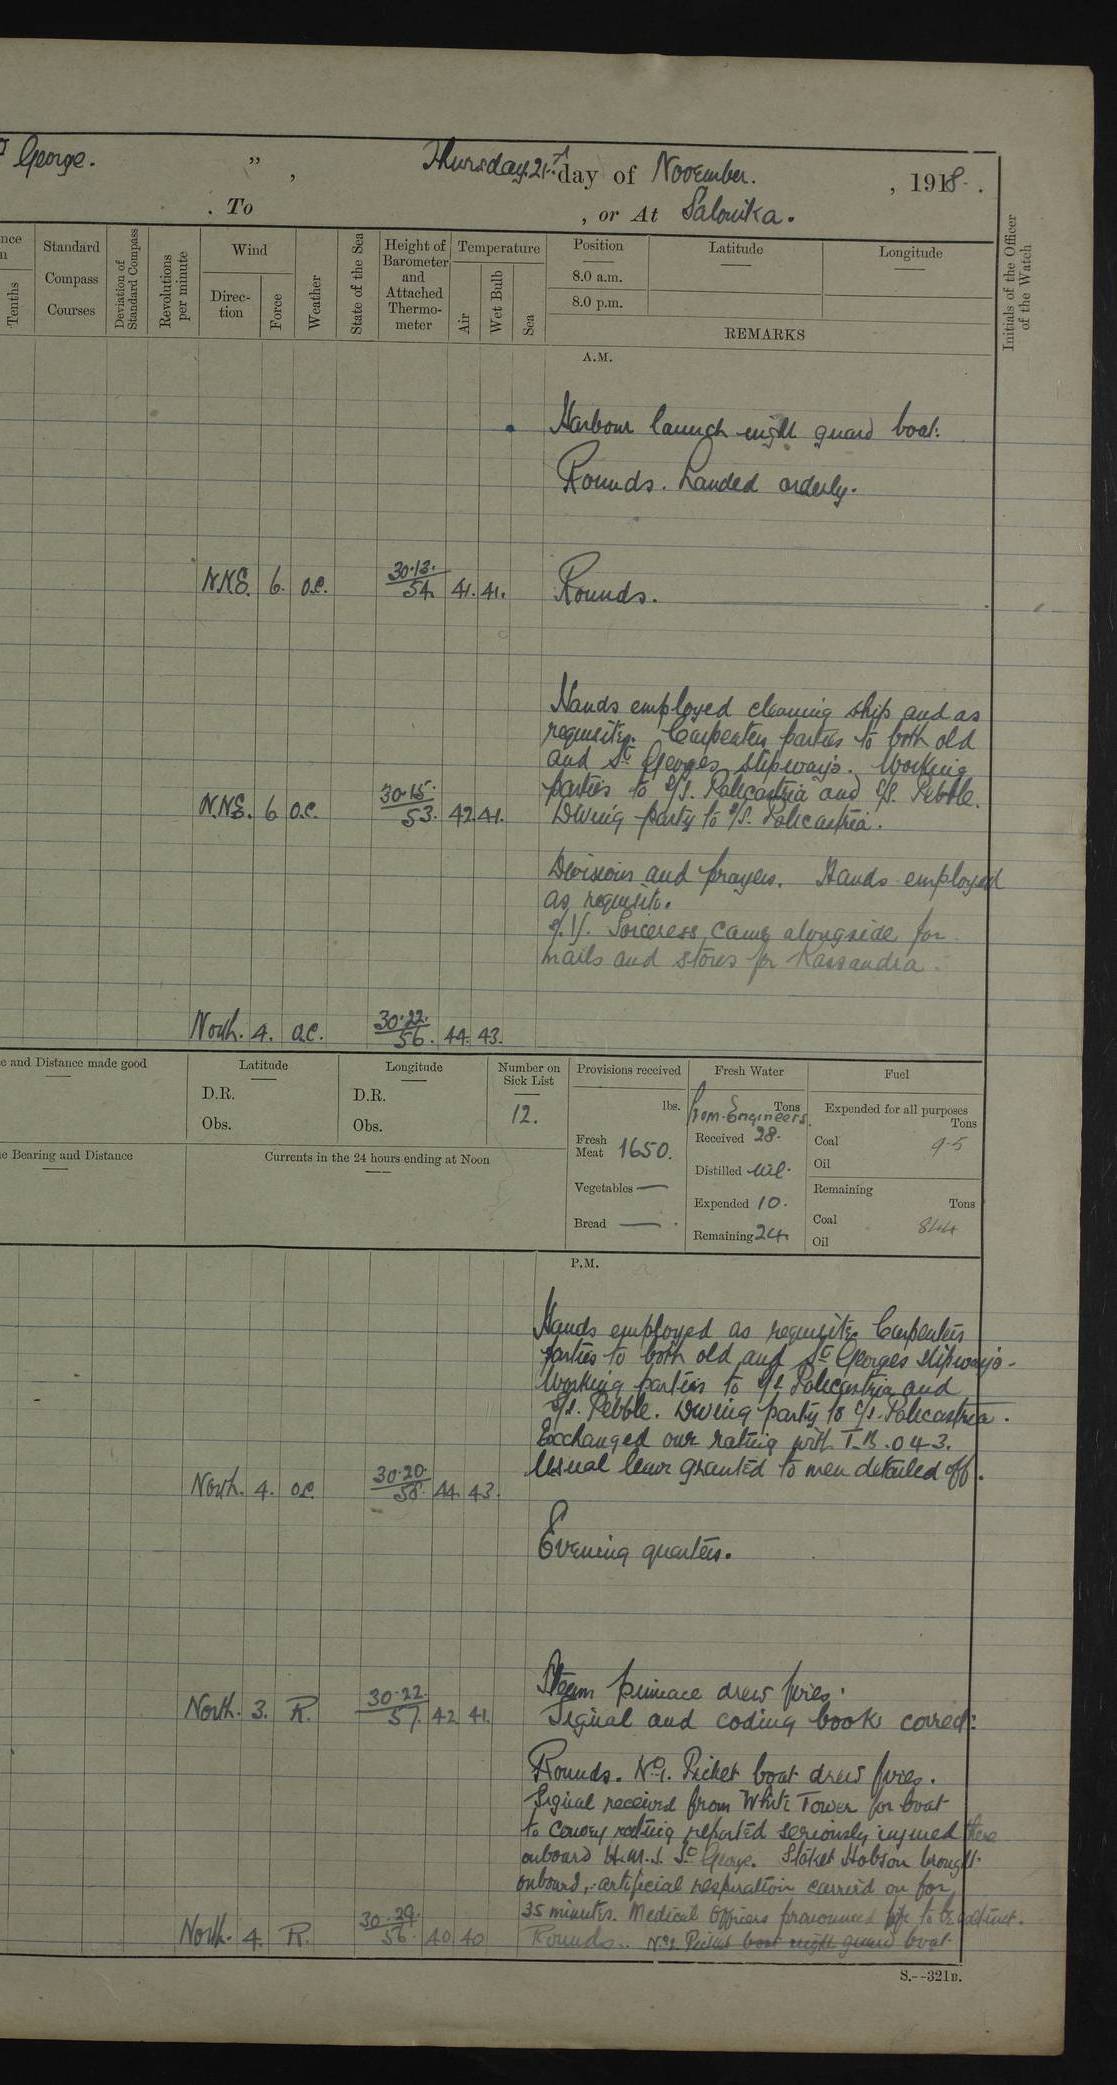 George. " , Thursday 21st day of November. , 1918.
. To , or At Salonika.
Tenths
Standard Compass Courses
Deviation of Standard Compass
Revolutions per minute
Wind
Direction
Force
Weather
State of the Sea
Height of Barometer and Attached Thermometer
Temperature
Air
Wet Bulb
Sea
Position
8.0 a.m.
8.0 p.m.
Latitude
Longitude
REMARKS
Initials of the Officer of the Watch
A.M.
Harbour launch night guard boat.
Rounds. Landed orderly.
N.N.E. 6. O.C. 30.13. 54. 41. 41. Rounds.
Hands employed cleaning ship and as
requisite. Carpenters parties to both old
and St Georges slipways. Working
parties to S/S. Policastria and S/S. Pebble.
N.N.E. 6 O.C. 30.15. 53. 42. 41. Diving party to S/S. Policastria.
Divisions and prayers. Hands employed
as requisite.
S.Y. Sorceress came alongside for
mails and stores for Kassandra.
North. 4. O.C. 30.22. 56. 44. 43.
e and Distance made good
Latitude
D.R.
Obs.
Longitude
D.R.
Obs.
Number on Sick List
12.
e Bearing and Distance
Currents in the 24 hours ending at Noon
Provisions received
lbs.
Fresh Meat 1650.
Vegetables —
Bread — .
Fresh Water
Tons
From Engineers.
Received 28.
Distilled Nil.
Expended 10.
Remaining 24.
Fuel
Expended for all purposes
Tons
Coal 9.5
Oil
Remaining
Tons
Coal 844
Oil
P.M.
Hands employed as requisite Carpenters
parties to both old and St Georges slipways.
Working parties to S/S Policastria and
S/S. Pebble. Diving party to S/S. Policastria.
Exchanged our rating with T.B. 043.
Usual leave granted to men detailed off.
North. 4. O.C. 30.20. 58. 44. 43.
Evening quarters.
Steam pinnace drew fires.
North. 3. R. 30.22. 57. 42 41. Signal and coding books correct.
Rounds. No 1. Picket boat drew fires.
Signal received from White Tower for boat
to convey rating reported seriously injured there
onboard H.M.S. St George. Stoker Hobson brought
onboard, artificial respiration carried on for
35 minutes. Medical Officers pronounced life to be extinct.
North. 4. R. 30.29. 56. 40 40 Rounds. No 2 Picket boat night guard boat.
S.--321B.